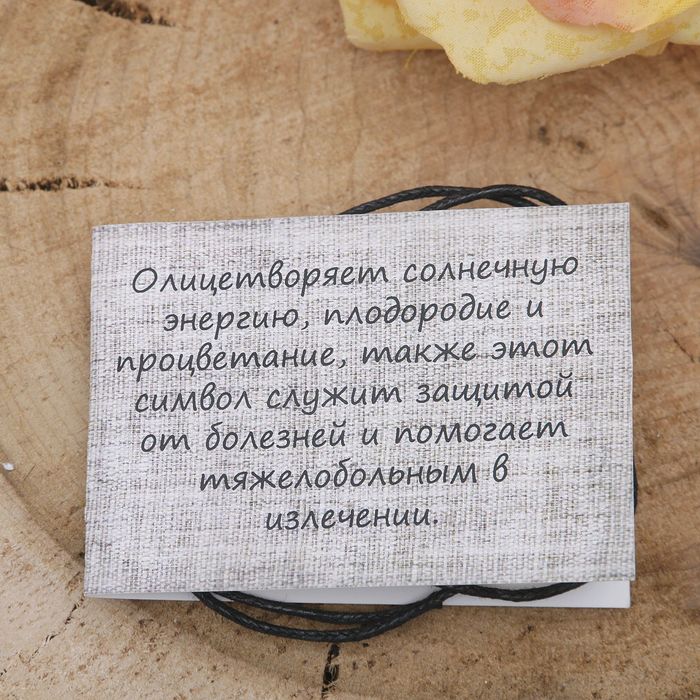 Олицетворяет солнечную
энергию, плодородие и
процветание, также этот
символ служит защитой
от болезней и помогает
тяжелобольным в
излечении.